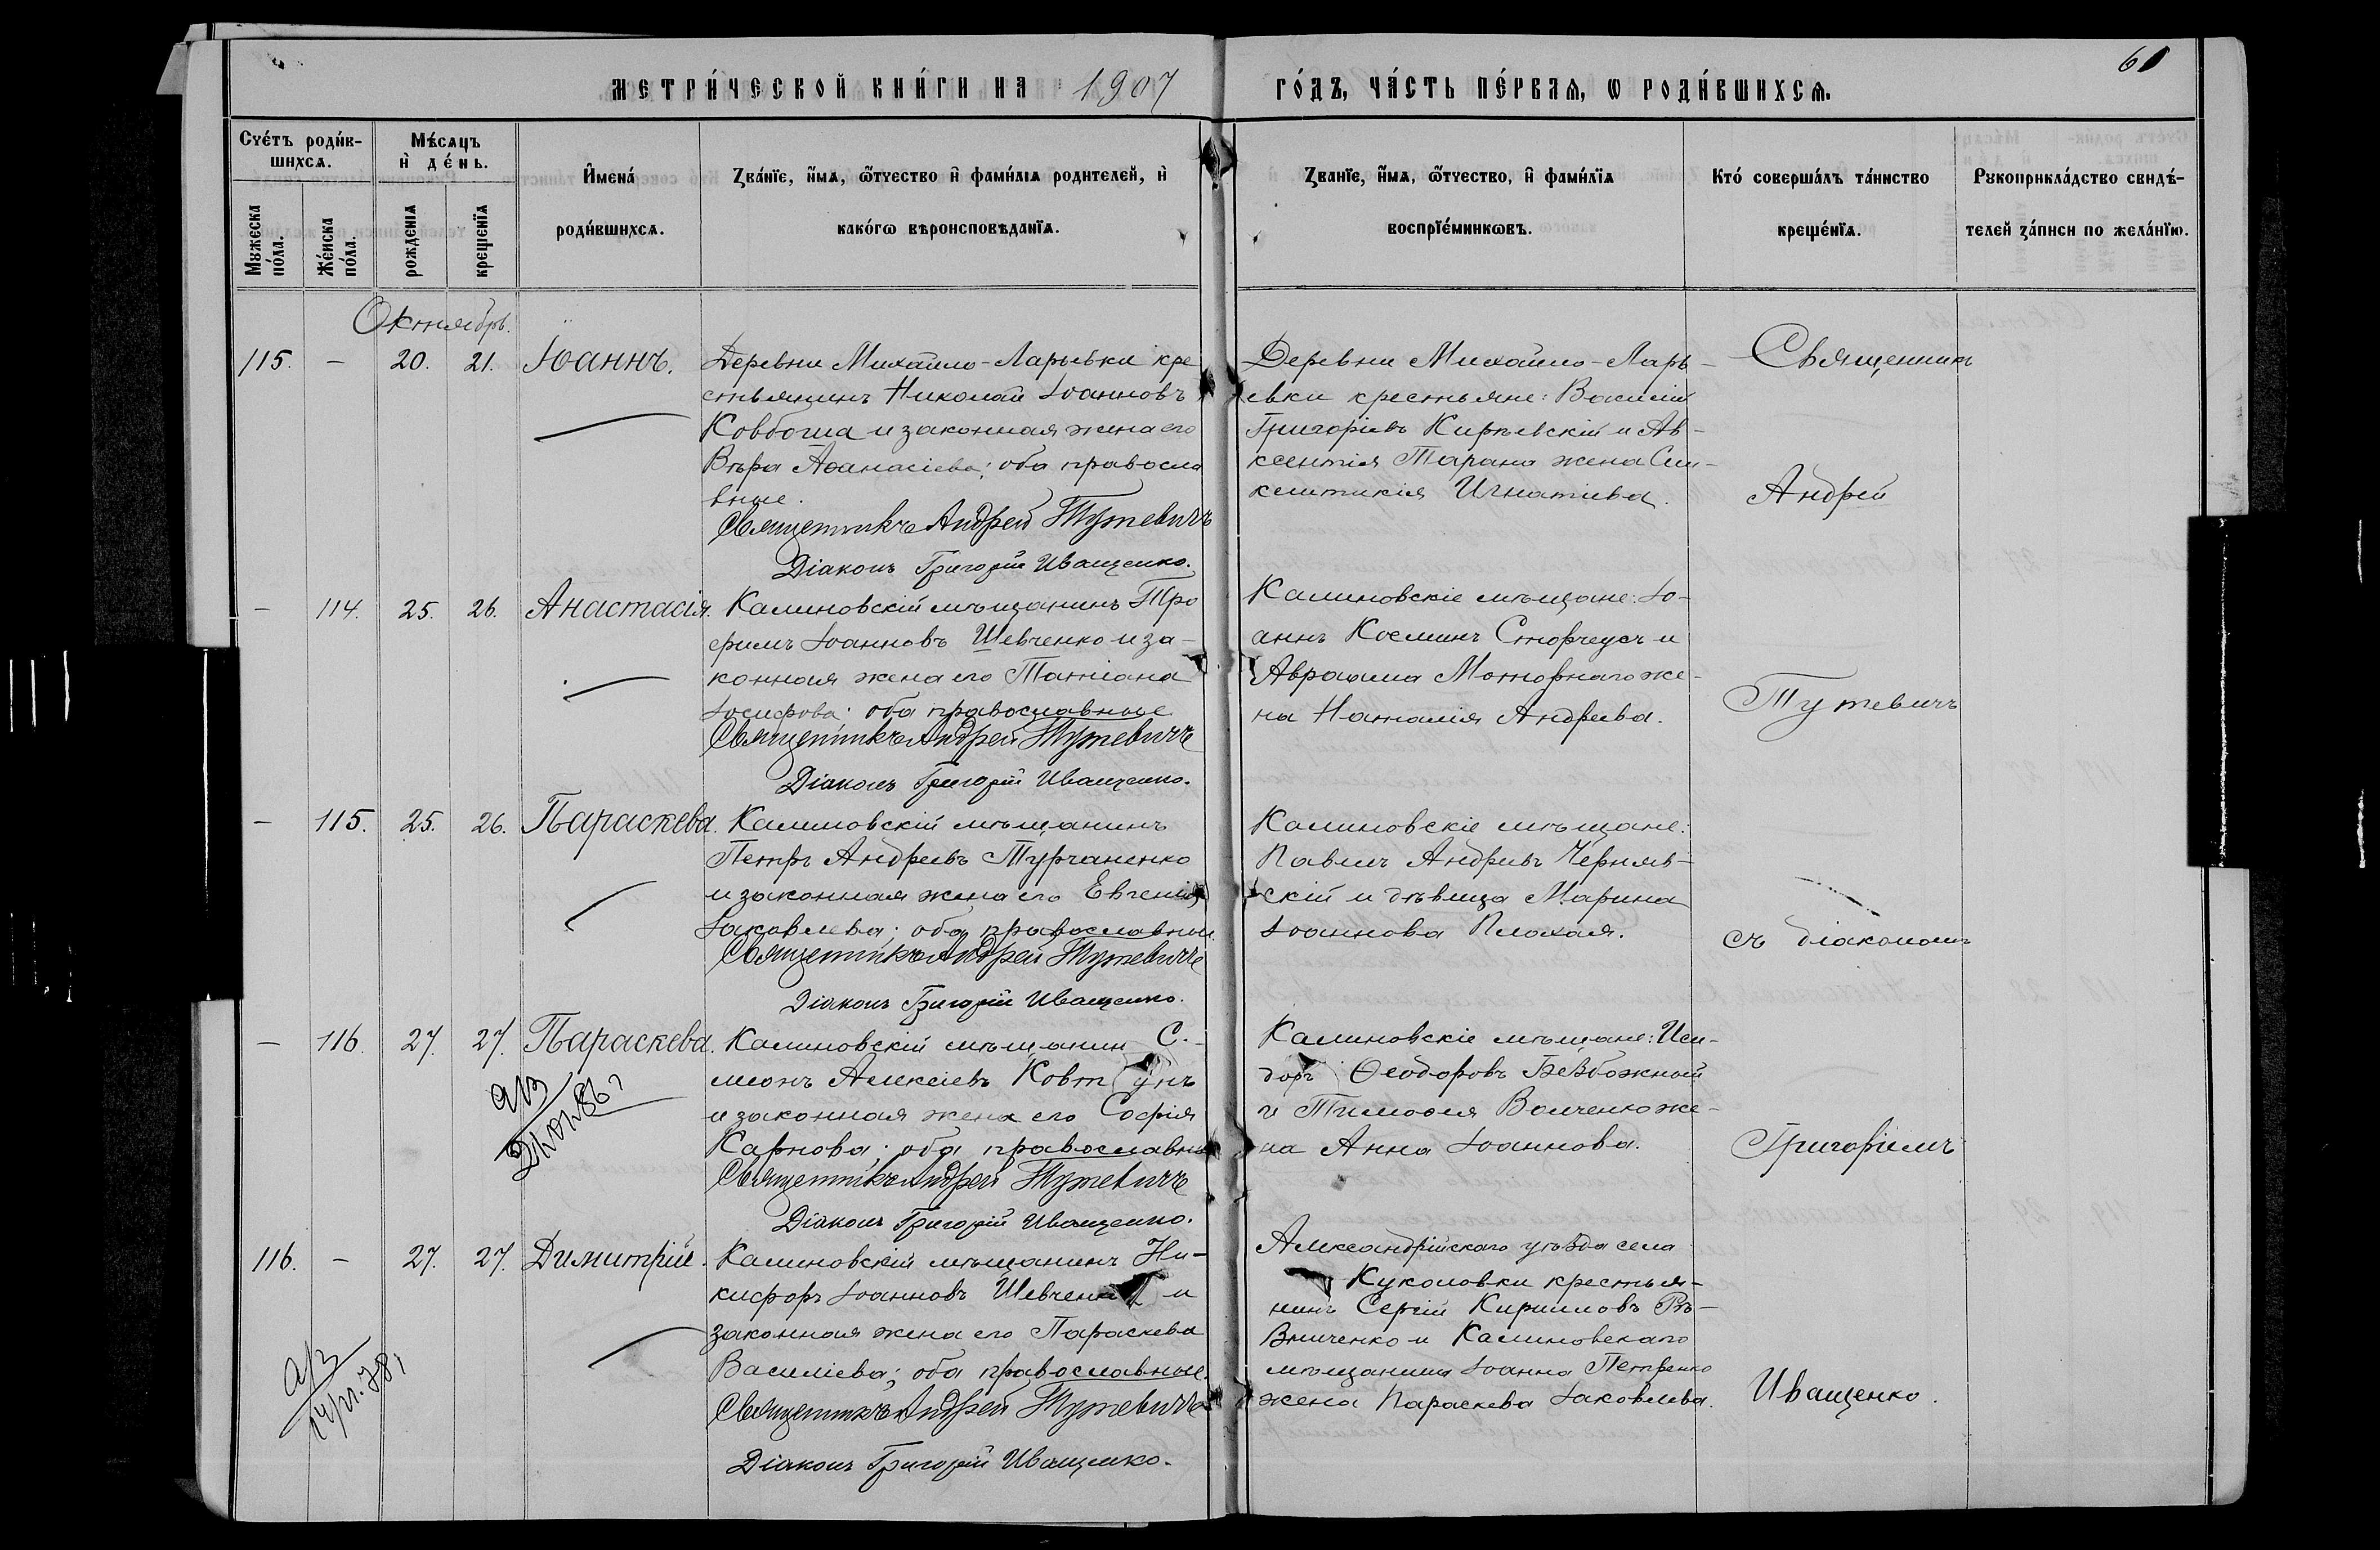 МЕТРИ́ЧЕСКОЙ КНИ́ГИ НА 1907 ГО́ДЪ, ЧА́СТЬ ПЕ́РВАѦ, Ѡ РОДИ́ВШИХСѦ.
61
Сче́тъ роди́в-
шихсѧ.
Мꙋжеска по́ла.
Же́нска по́ла.
Мѣ́сѧцъ
и҆ де́нь.
рожденїѧ
крещенїѧ
И҆мена́
роди́вшихсѧ.
Зва́нїе, и҆́мѧ, ѻ҆́тчество и҆ фами́лїѧ родителей, и҆
како́гѡ вѣроисповѣданїѧ.
Званїе, и҆́мѧ, ѻ҆́тчество, и҆ фами́лїѧ
воспрїе́мникѡвъ.
Кто́ соверша́лъ та́инство
креще́нїѧ.
Рꙋкоприкла́дство свидѣ́-
телей за́писи по жела́нїю.
Октябрь.
115. — 20. 21. Іоаннъ.
Деревни Михайло-Ларьевки кре
стьянинъ Николай Іоанновъ
Ковбаша и законная жена его
Вѣра Аѳанасіева; оба правосла
вные.
Священникъ Андрей Тутевичъ
Діаконъ Григорій Иващенко.
Деревни Михайло-Ларь-
евки крестьяне: Василій
Григоріевъ Кирѣевскій и Ав-
ксентія Тарана жена Син-
клитикія Игнатіева.
— 114. 25. 26. Анастасія.
Калиновскій мѣщанинъ Тро
фимъ Іоанновъ Шевченко и за-
конная жена его Татіана
Іосифова; оба православные
Священникъ Андрей Тутевичъ
Діаконъ Григорій Иващенко.
Калиновскіе мѣщане: Іо-
аннъ Косминъ Сторчеусъ и
Авраама Моторнаго же-
на Наталія Андреева.
— 115. 25. 26. Параскева.
Калиновскій мѣщанинъ
Петръ Андреевъ Турчаненко
и законная жена его Евгенія
Іаковлева; оба православные.
Священникъ Андрей Тутевичъ
Діаконъ Григорій Иващенко.
Калиновскіе мѣщане:
Павелъ Андреевъ Черняв-
скій и дѣвица Марина
Іоаннова Плохая.
— 116. 27. 27. Параскева.
Калиновскій мѣщанин С.
меонъ Алексіевъ Ковтунъ
и законная жена его Софія
Карпова; оба православны
Священникъ Андрей Тутевичъ
Діаконъ Григорій Иващенко.
Калиновскіе мѣщане: Иси-
доръ Ѳеодоровъ Безбожный
и Тимоѳея Волченко же-
на Анна Іоаннова.
116. — 27. 27. Димитрій.
Калиновскій мѣщанинъ Ни-
кифоръ Іоанновъ Шевченко и
законная жена его Параскева
Василіева; оба православные.
Священникъ Андрей Тутевичъ
Діаконъ Григорій Иващенко.
Александрійскаго уѣзда села
Куколовки крестья-
нинъ Сергій Кирилловъ Рѣ-
вниченко и Калиновскаго
мѣщанина Іоанна Петренко
жена Параскева Іаковлева.
Священникъ
Андрей
Тутевичъ
съ діакономъ
Григоріемъ
Иващенко.